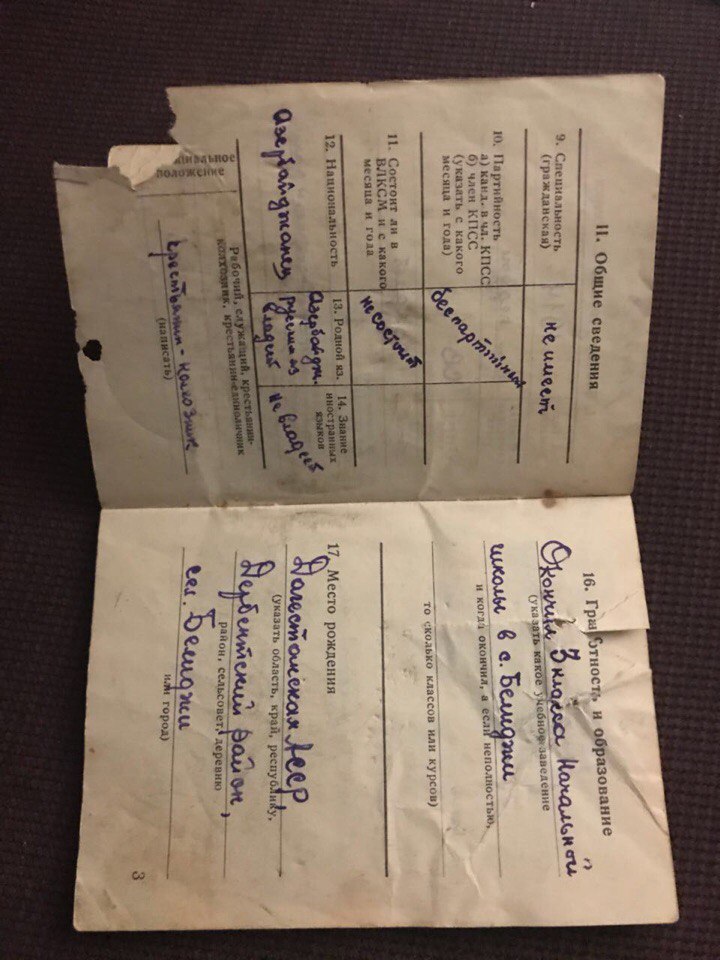 II. Общие сведения
9. Специальность
(гражданская)
не имеет
10. Партийность
а) канд. в чл. КПСС
б) член КПСС
(указать с какого
месяца и года)
беспартийный
11. Состоит ли в
ВЛКСМ и с какого
месяца и года
не состоит
12. Национальность
Азербайджанец
13. Родной яз.
Азербайдж.
русским яз
владеет
14. Знание
иностранных
языков
не владеет
положение
Рабочий, служащий, крестьянин-
колхозник, крестьянин-единоличник
крестьянин-колхозник
(написать)
16. Грамотность и образование
Окончил 3 класса начальной
(указать какое учебное заведение
школы в с. Белиджи
и когда окончил, а если неполностью,
то сколько классов или курсов)
17. Место рождения
Дагестанская АССР,
(указать область, край, республику,
Дербентский район,
район, сельсовет, деревню
сел. Белиджи
или город)
3